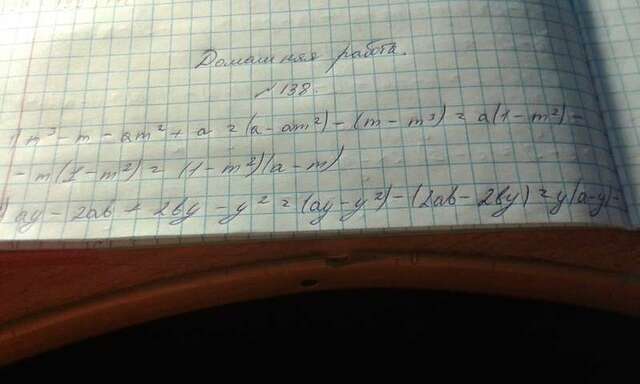 Домашняя работа.
№138.
) m³ - m - am² + a = (a - am²) - (m - m³) = a(1 - m²) -
- m(1 - m²) = (1 - m²)(a - m)
) ay - 2ab + 2by - y² = (ay - y²) - (2ab - 2by) = y(a - y) -